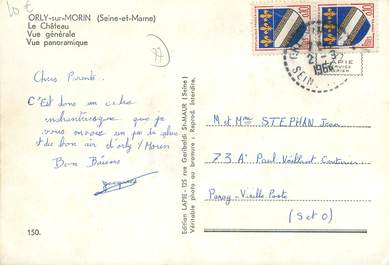 10 €
ORLY-sur-MORIN (Seine-et-Marne)
Le Château
Vue générale
Vue panoramique
77
Chers Parents.
C'Est dans un cadre
enchanteresque que je
vous envoie un peu de pluie
et du bon air d'orly/Morin
Bon Baisers
150.
Edition LAPIE - 125 rue Garibaldi St-MAUR (Seine)
Véritable photo au bromure : Reprod. Interdite.
0,10
0,10
1966
LAPIE
M et Mme STEPHAN Jean
73 A Paul Vaillant Couturier
Paray-Vieille Poste
(S et O)